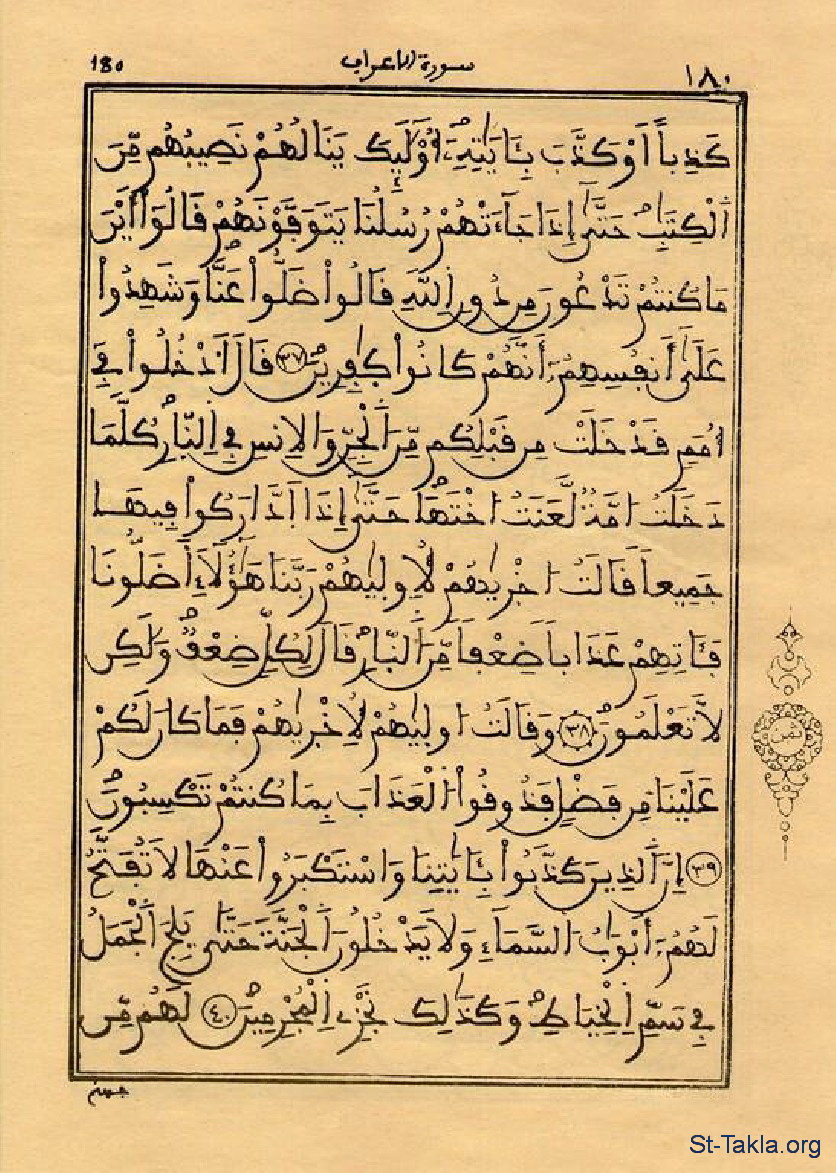 180 سورة الاعراف ١٨٠
كَذِباً اَوْ كَذَّبَ بِـَٔايَٰتِهِۦٓ أُوْلَٰٓئِكَ يَنَالُهُمْ نَصِيبُهُم مِّنَ
اَ۬لْكِتَٰبِ حَتَّىٰٓ إِذَا جَآءَتْهُمْ رُسُلُنَا يَتَوَفَّوْنَهُمْ قَالُوٓاْ أَيْنَ
مَا كُنتُمْ تَدْعُونَ مِن دُونِ اِ۬للَّهِ قَالُواْ ضَلُّواْ عَنَّا وَشَهِدُواْ
عَلَىٰٓ أَنفُسِهِمُۥٓ أَنَّهُمْ كَانُواْ كَٰفِرِينَ ٣٧ قَالَ اَ۟دْخُلُواْ فِےٓ
أُمَمٖ قَدْ خَلَتْ مِن قَبْلِكُم مِّنَ اَ۬لْجِنِّ وَالِانسِ فِے اِ۬لنّ۪ارِ كُلَّمَا
دَخَلَتُ ا۟مَّةٞ لَّعَنَتُ ا۟خْتَهَا حَتَّىٰٓ إِذَا اَ۪دَّارَكُواْ فِيهَا
جَمِيعاٗ قَالَتُ ا۟خْر۪يٰهُمْ لِأُولِيٰهُمْ رَبَّنَا هَٰٓؤُلَآءِ اَضَلُّونَا
فَـَٔاتِهِمْ عَذَاباٗ ضِعْفاٗ مِّنَ اَ۬لنّ۪ارِ قَالَ لِكُلّٖ ضِعْفٞ وَلَٰكِن
لَّا تَعْلَمُونَ ٣٨ وَقَالَتُ ا۟ولِيٰهُمْ لِأُخْر۪يٰهُمْ فَمَا كَانَ لَكُمْ
عَلَيْنَا مِن فَضْلٖ فَذُوقُواْ اُ۬لْعَذَابَ بِمَا كُنتُمْ تَكْسِبُونَ
٣٩ إِنَّ اَ۬لذِينَ كَذَّبُواْ بِـَٔايَٰتِنَا وَاسْتَكْبَرُواْ عَنْهَا لَا تُفَتَّحُ
لَهُمُۥٓ أَبْوَٰبُ اُ۬لسَّمَآءِ وَلَا يَدْخُلُونَ اَ۬لْجَنَّةَ حَتَّىٰ يَلِجَ اَ۬لْجَمَلُ
فِے سَمِّ اِ۬لْخِيَاطِ وَكَذَٰلِكَ نَجْزِے اِ۬لْمُجْرِمِينَ ٤٠ لَهُم مِّن
جهنم
ثمن
St-Takla.org